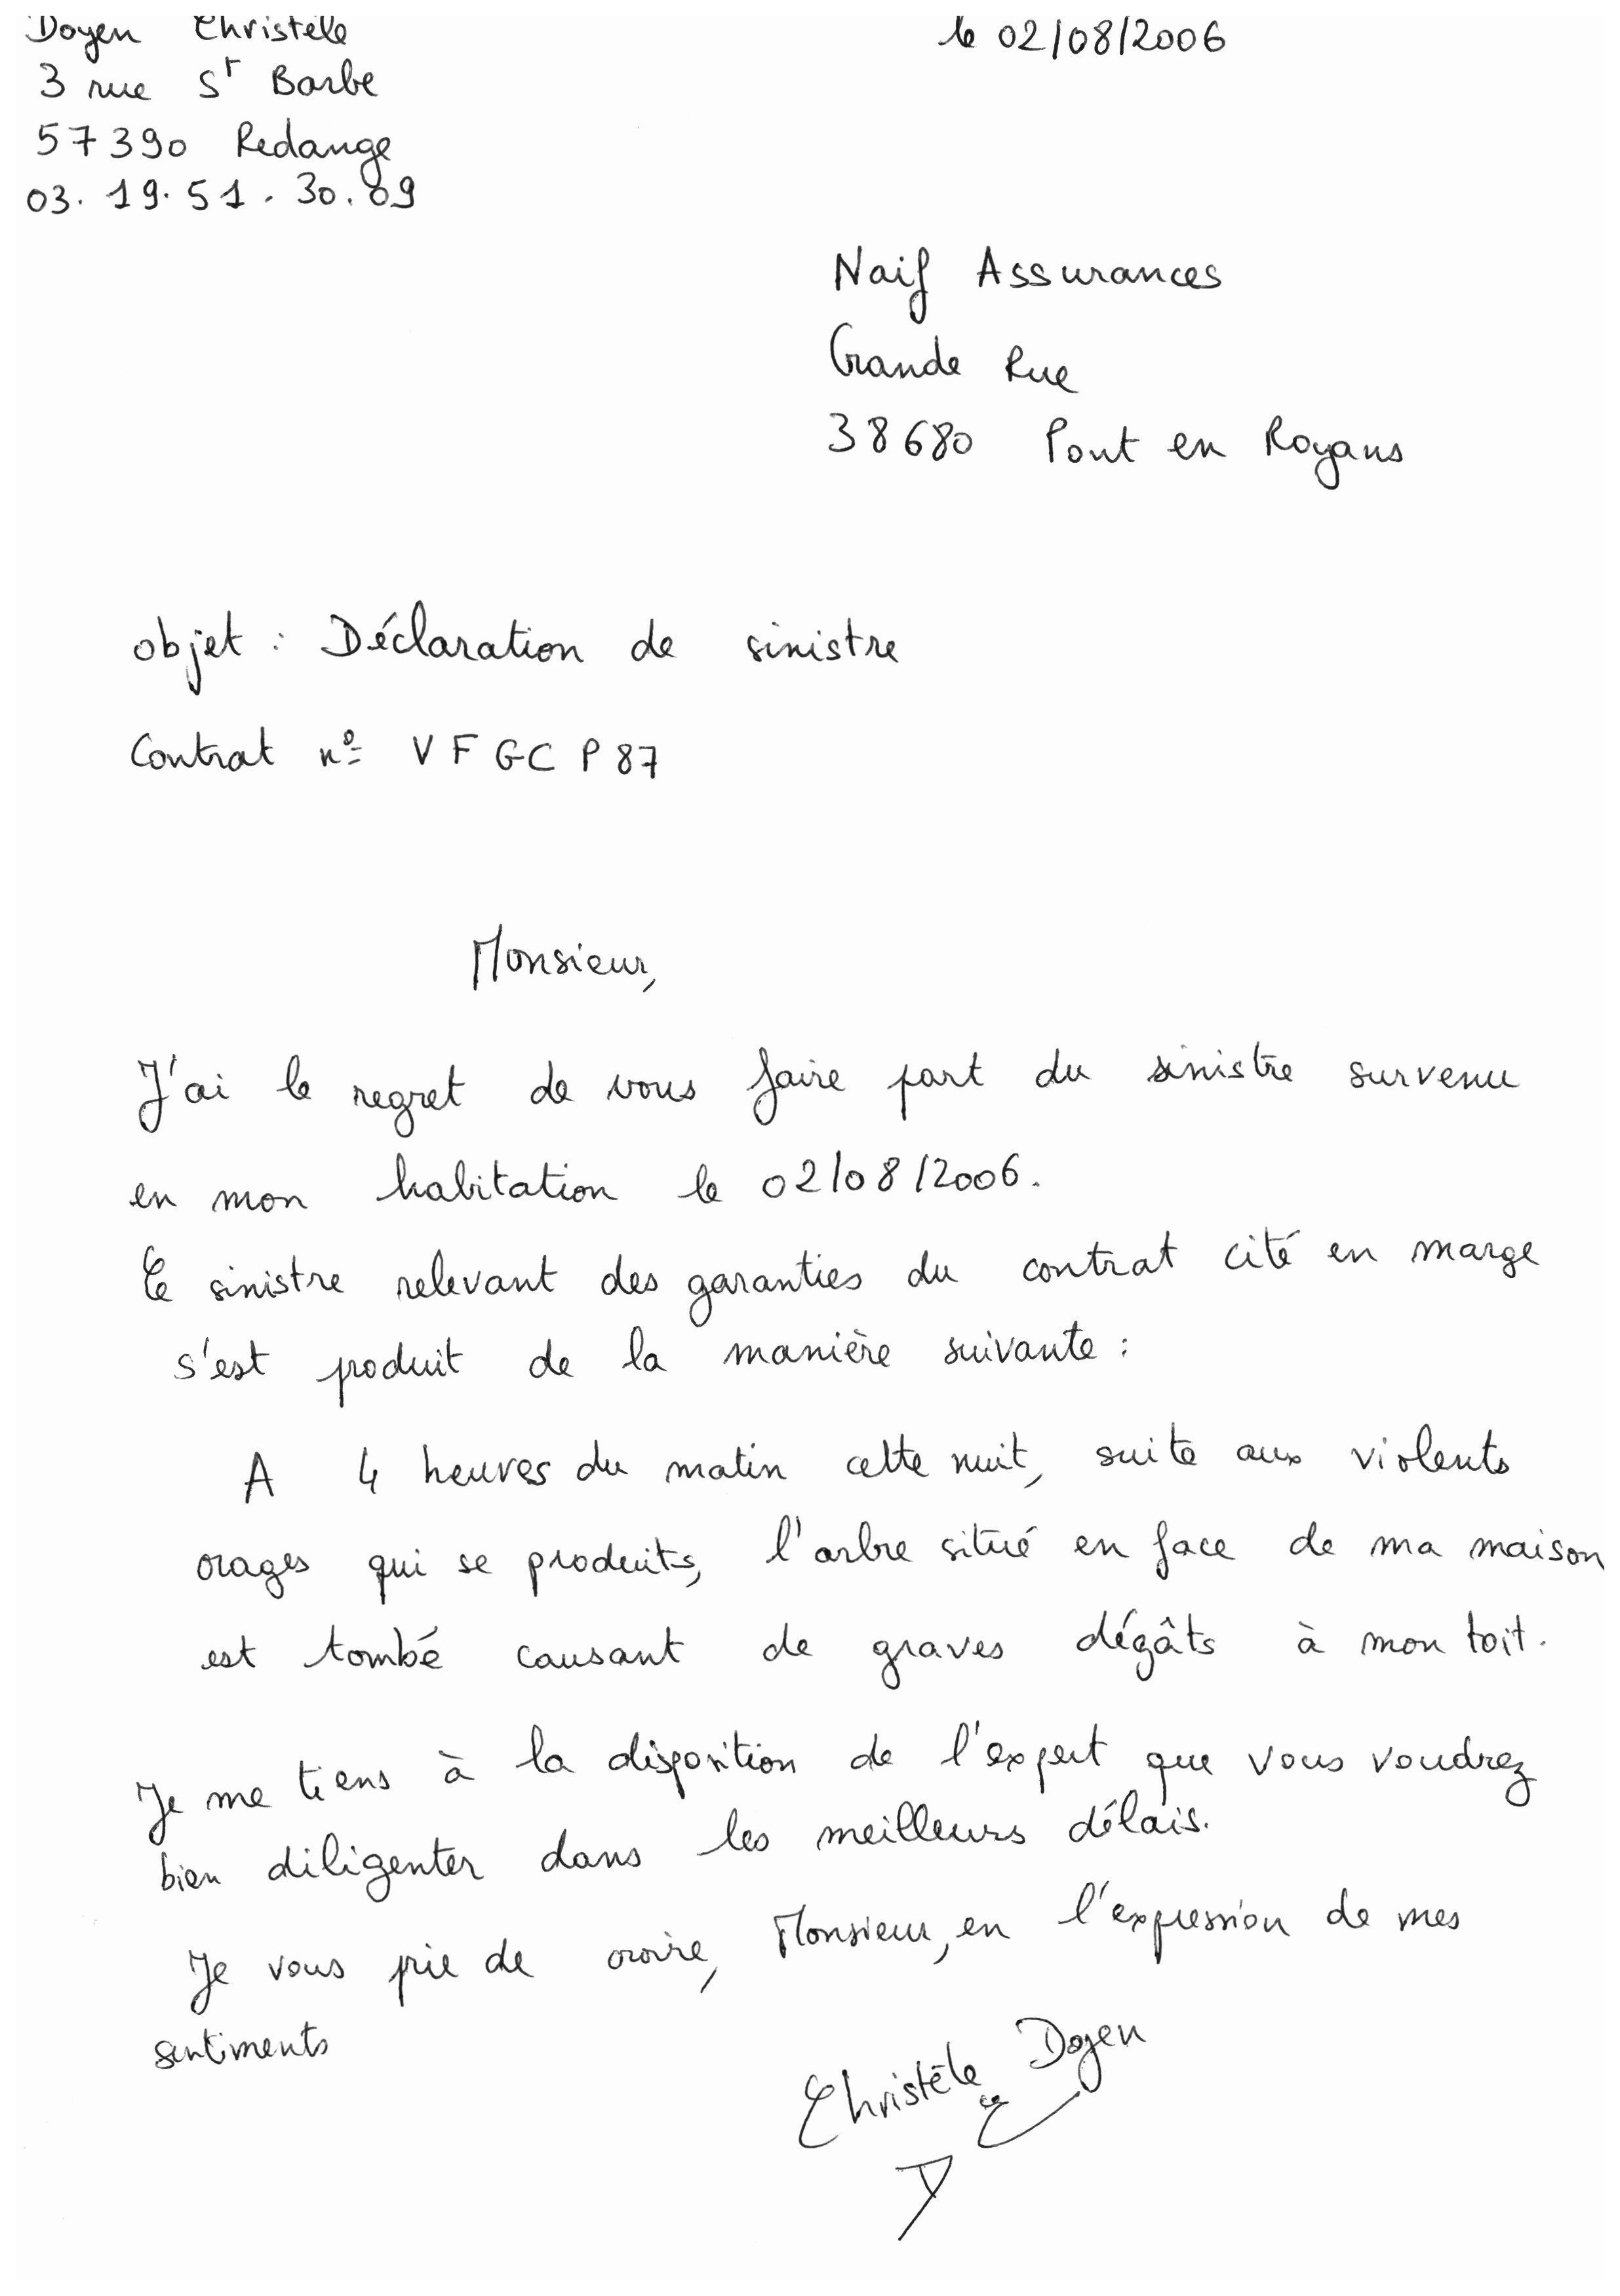 Doyen Christèle
le 02/08/2006
3 rue St Barbe
57390 Redange
03.19.51.30.89
Naif Assurances
Grande Rue
38680 Pont en Royans
objet : Déclaration de sinistre
Contrat n° VFGCP87
Monsieur,
J'ai le regret de vous faire part du sinistre survenu
en mon habitation le 02/08/2006.
Ce sinistre relevant des garanties du contrat cité en marge
s'est produit de la manière suivante :
A 4 heures du matin cette nuit, suite aux violents
orages qui se produits, l'arbre situé en face de ma maison
est tombé causant de graves dégâts à mon toit.
Je me tiens à la disposition de l'expert que vous voudrez
bien diligenter dans les meilleurs délais.
Je vous prie de croire, Monsieur, en l'expression de mes
sentiments
Christèle Doyen